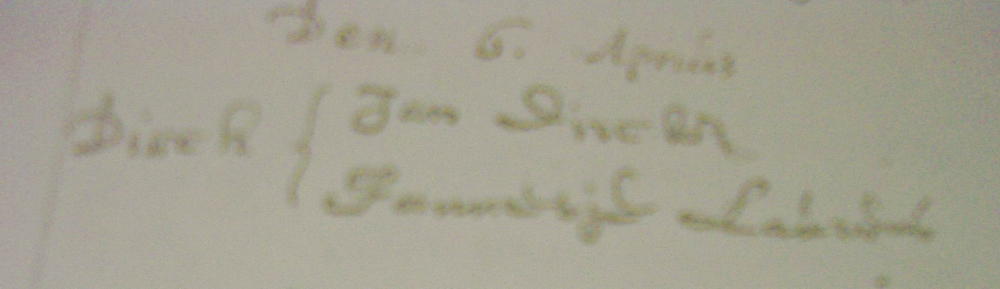 Den 6. Aprilis
Dirck { Jan Dircksz
Jannetje